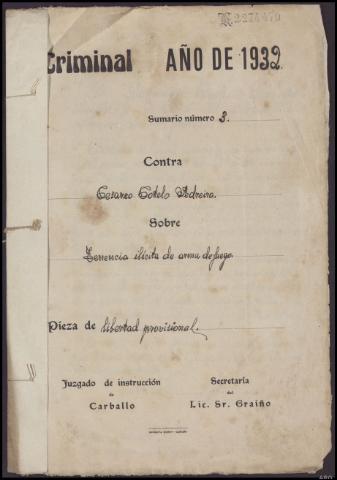 Criminal AÑO DE 1932
Sumario número 3.
Contra
Cesareo Cotelo Pedreira.
Sobre
Tenencia ilícita de arma de fuego.
Pieza de libertad provisional.
Juzgado de instrucción
de
Carballo
Secretaría
del
Lic. Sr. Graiño